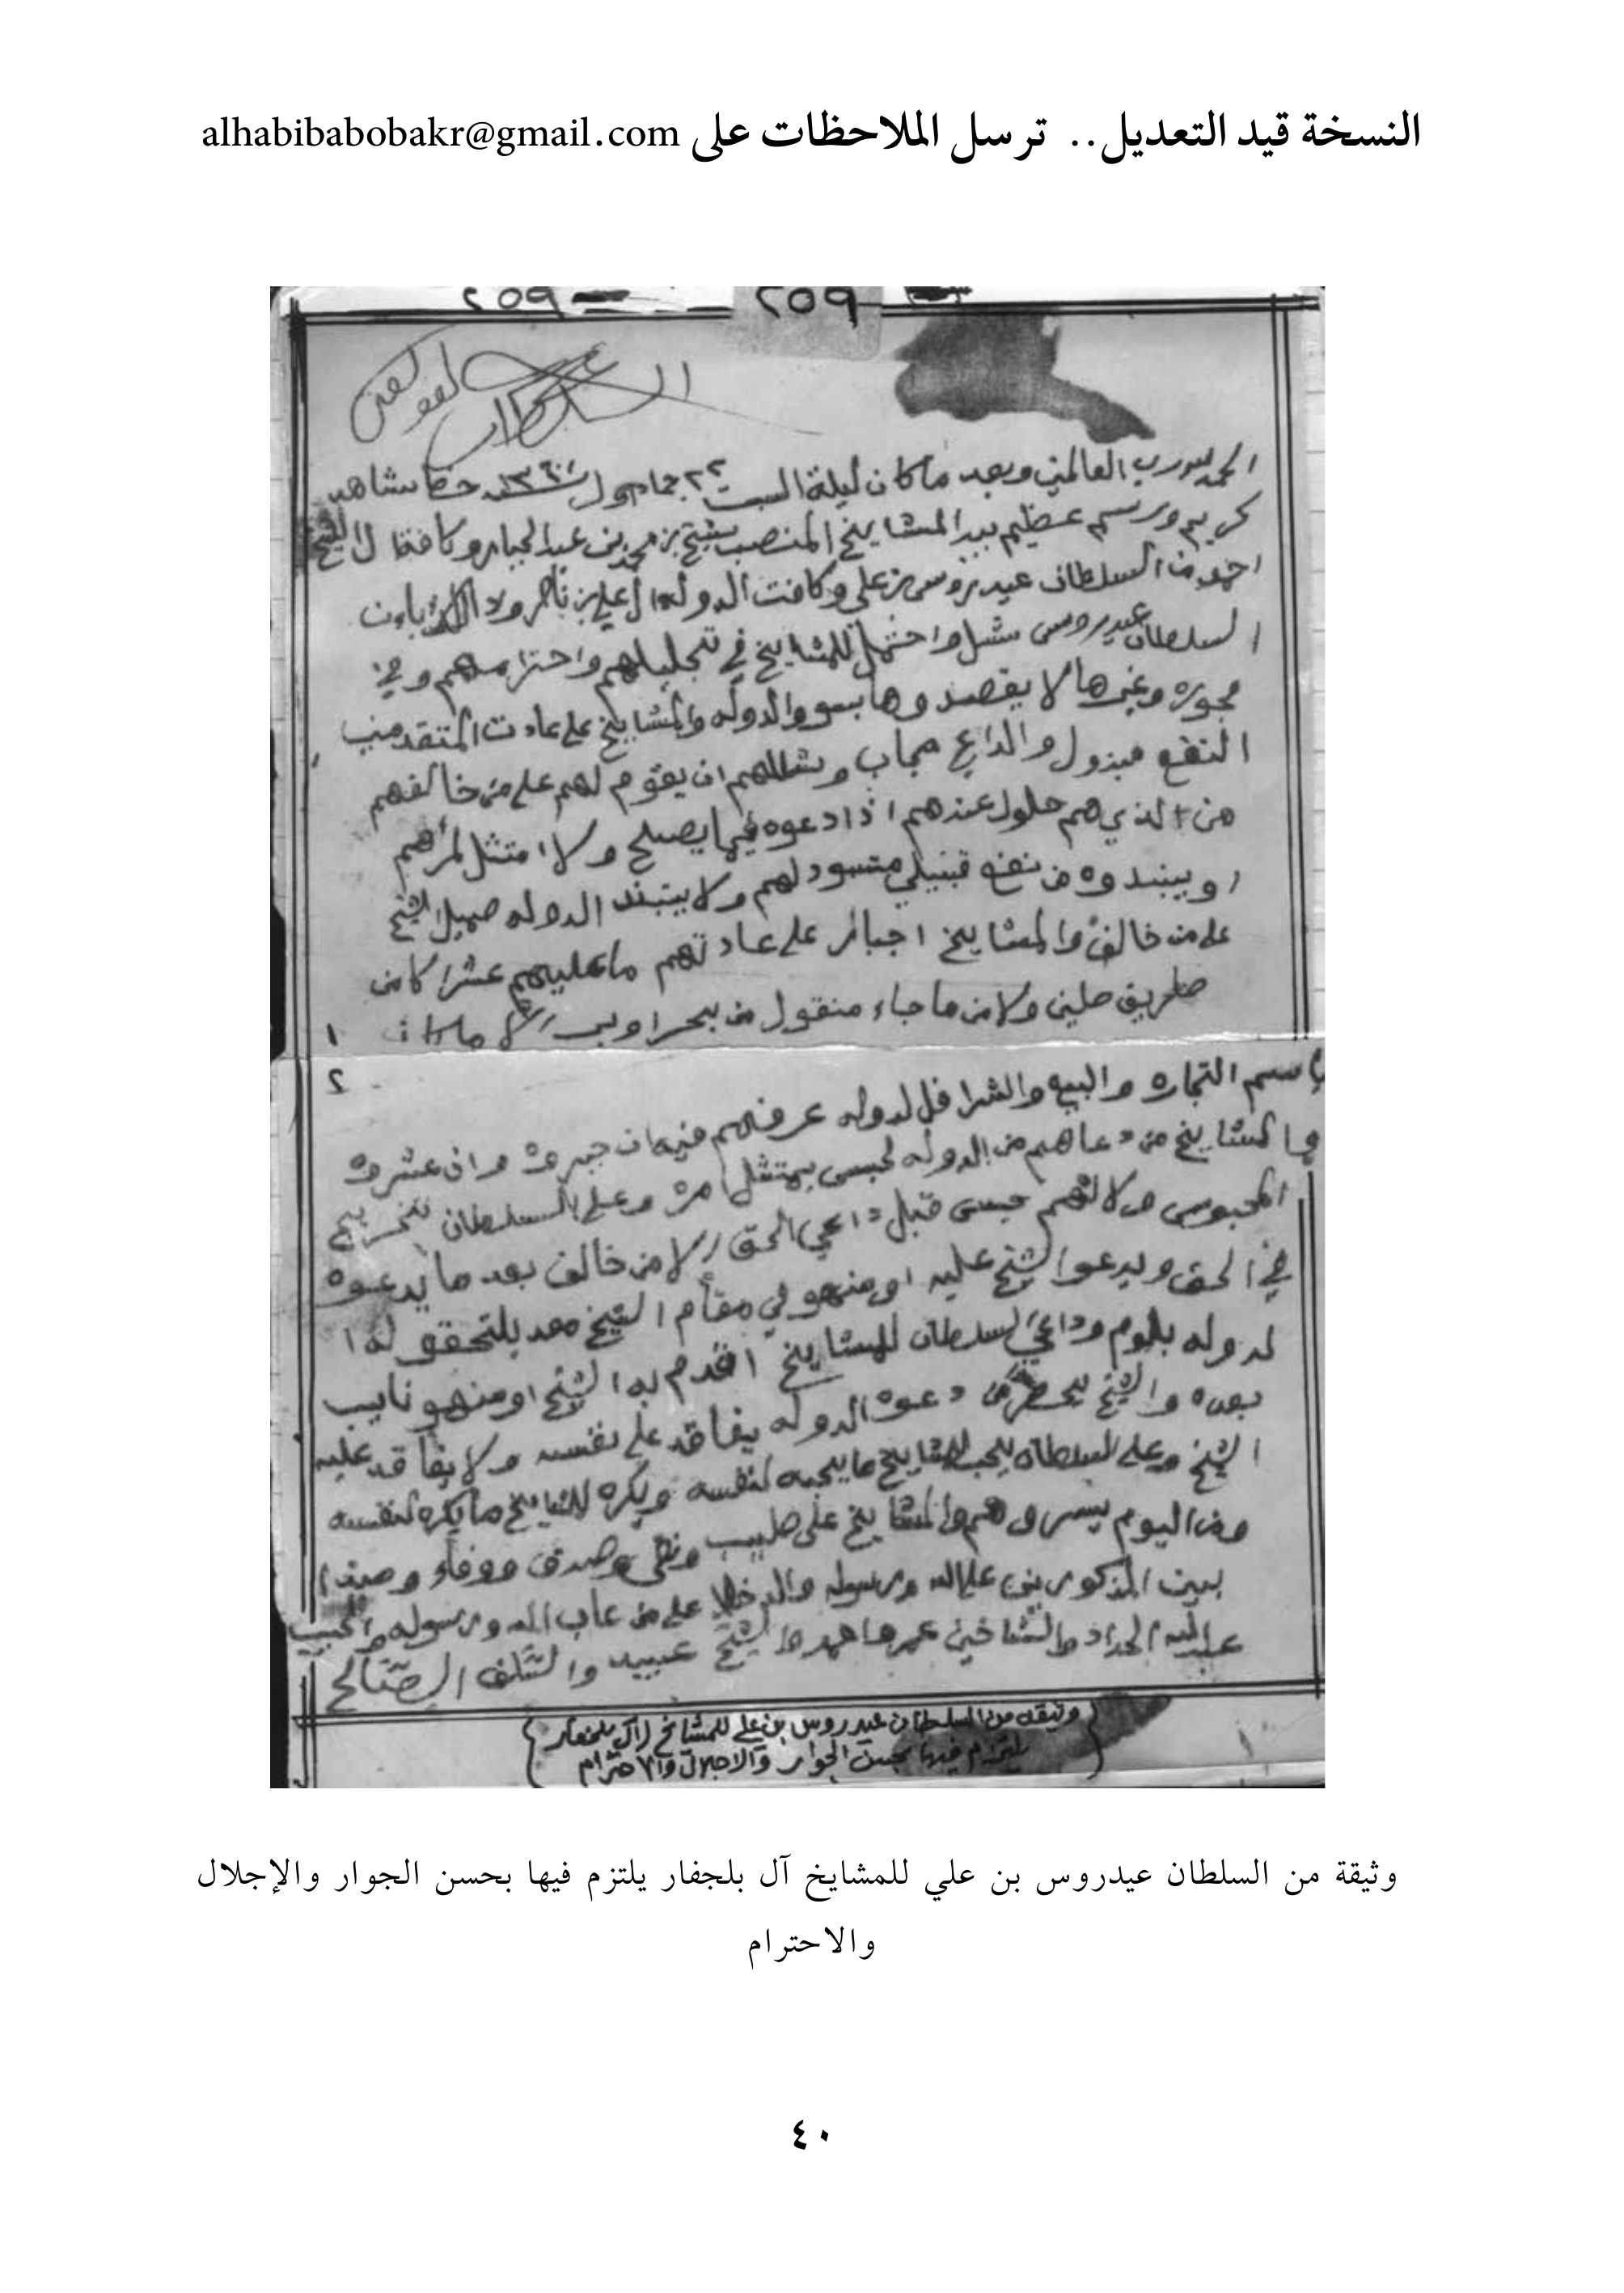 النسخة قيد التعديل.. ترسل الملاحظات على alhabibabobakr@gmail.com
٢٥٩ ٢٥٩
السلطان
الحمد لله رب العالمين وبعد ما كان ليلة السبت ٢٢ جماد حظا شاهد
كريم ورسم عظيم بيد المشايخ المنصب شيخ بن محمد بن عبد الجبار وكافة ال الشيخ
احمد من السلطان عيدروس بن علي وكافت الدوله ال علي بن ناصر
السلطان عيدروس شل واحتمل للمشايخ في تجليلهم واحترامهم وفي
وغيرها لا يقصد والدوله والمشايخ على عادت المتقدمين
النفع مبذول والداعي مجاب وشللهم ان يقوم لهم على من خالفهم
من الذي هم حلول عندهم اذا دعوه فيما يصلح ولا امتثل لمرهم
من نفع قبيلي لهم ولا الدوله صميل الشيخ
على من خالف والمشايخ اجبار على عادتهم ما عليهم عشرا كان
طريق ولا من ما جاء منقول من بحر او بر الا ما كان ١
٢
باسم التجاره والبيع والشرا فل لدوله عرفهم فيه ان جبروه وان عشروه
والمشايخ من دعاهم من الدوله لحبس يمتثل امره وعلى السلطان تخريج
المحبوس ولا لهم حبس قبل داعي الحق الا من خالف بعد ما يدعوه
في الحق ويدعوا الشيخ عليه او منهو في مقام الشيخ
لدوله بلوم وداعي السلطان للمشايخ اقدم به الشيخ او منهو نايب
بعده والشيخ دعوة الدوله يفاقد على نفسه ولا يفاقد عليه
الشيخ وعلى السلطان يحب للمشايخ ما يحبه لنفسه ويكره للمشايخ ما يكره لنفسه
ومن اليوم هم والمشايخ على طيب ونقى وصدق ووفاء وصفا
بين المذكورين على الله ورسوله على من عاب الله ورسوله والحبيب
عبدالله الحداد والشيخ عبيد والسلف الصالح
وثيقه من السلطان عيدروس بن علي للمشائخ ال بلجفار
يلتزم فيها بحسن الجوار والاجلال والاحترام
وثيقة من السلطان عيدروس بن علي للمشايخ آل بلجفار يلتزم فيها بحسن الجوار والإجلال
والاحترام
٤٠